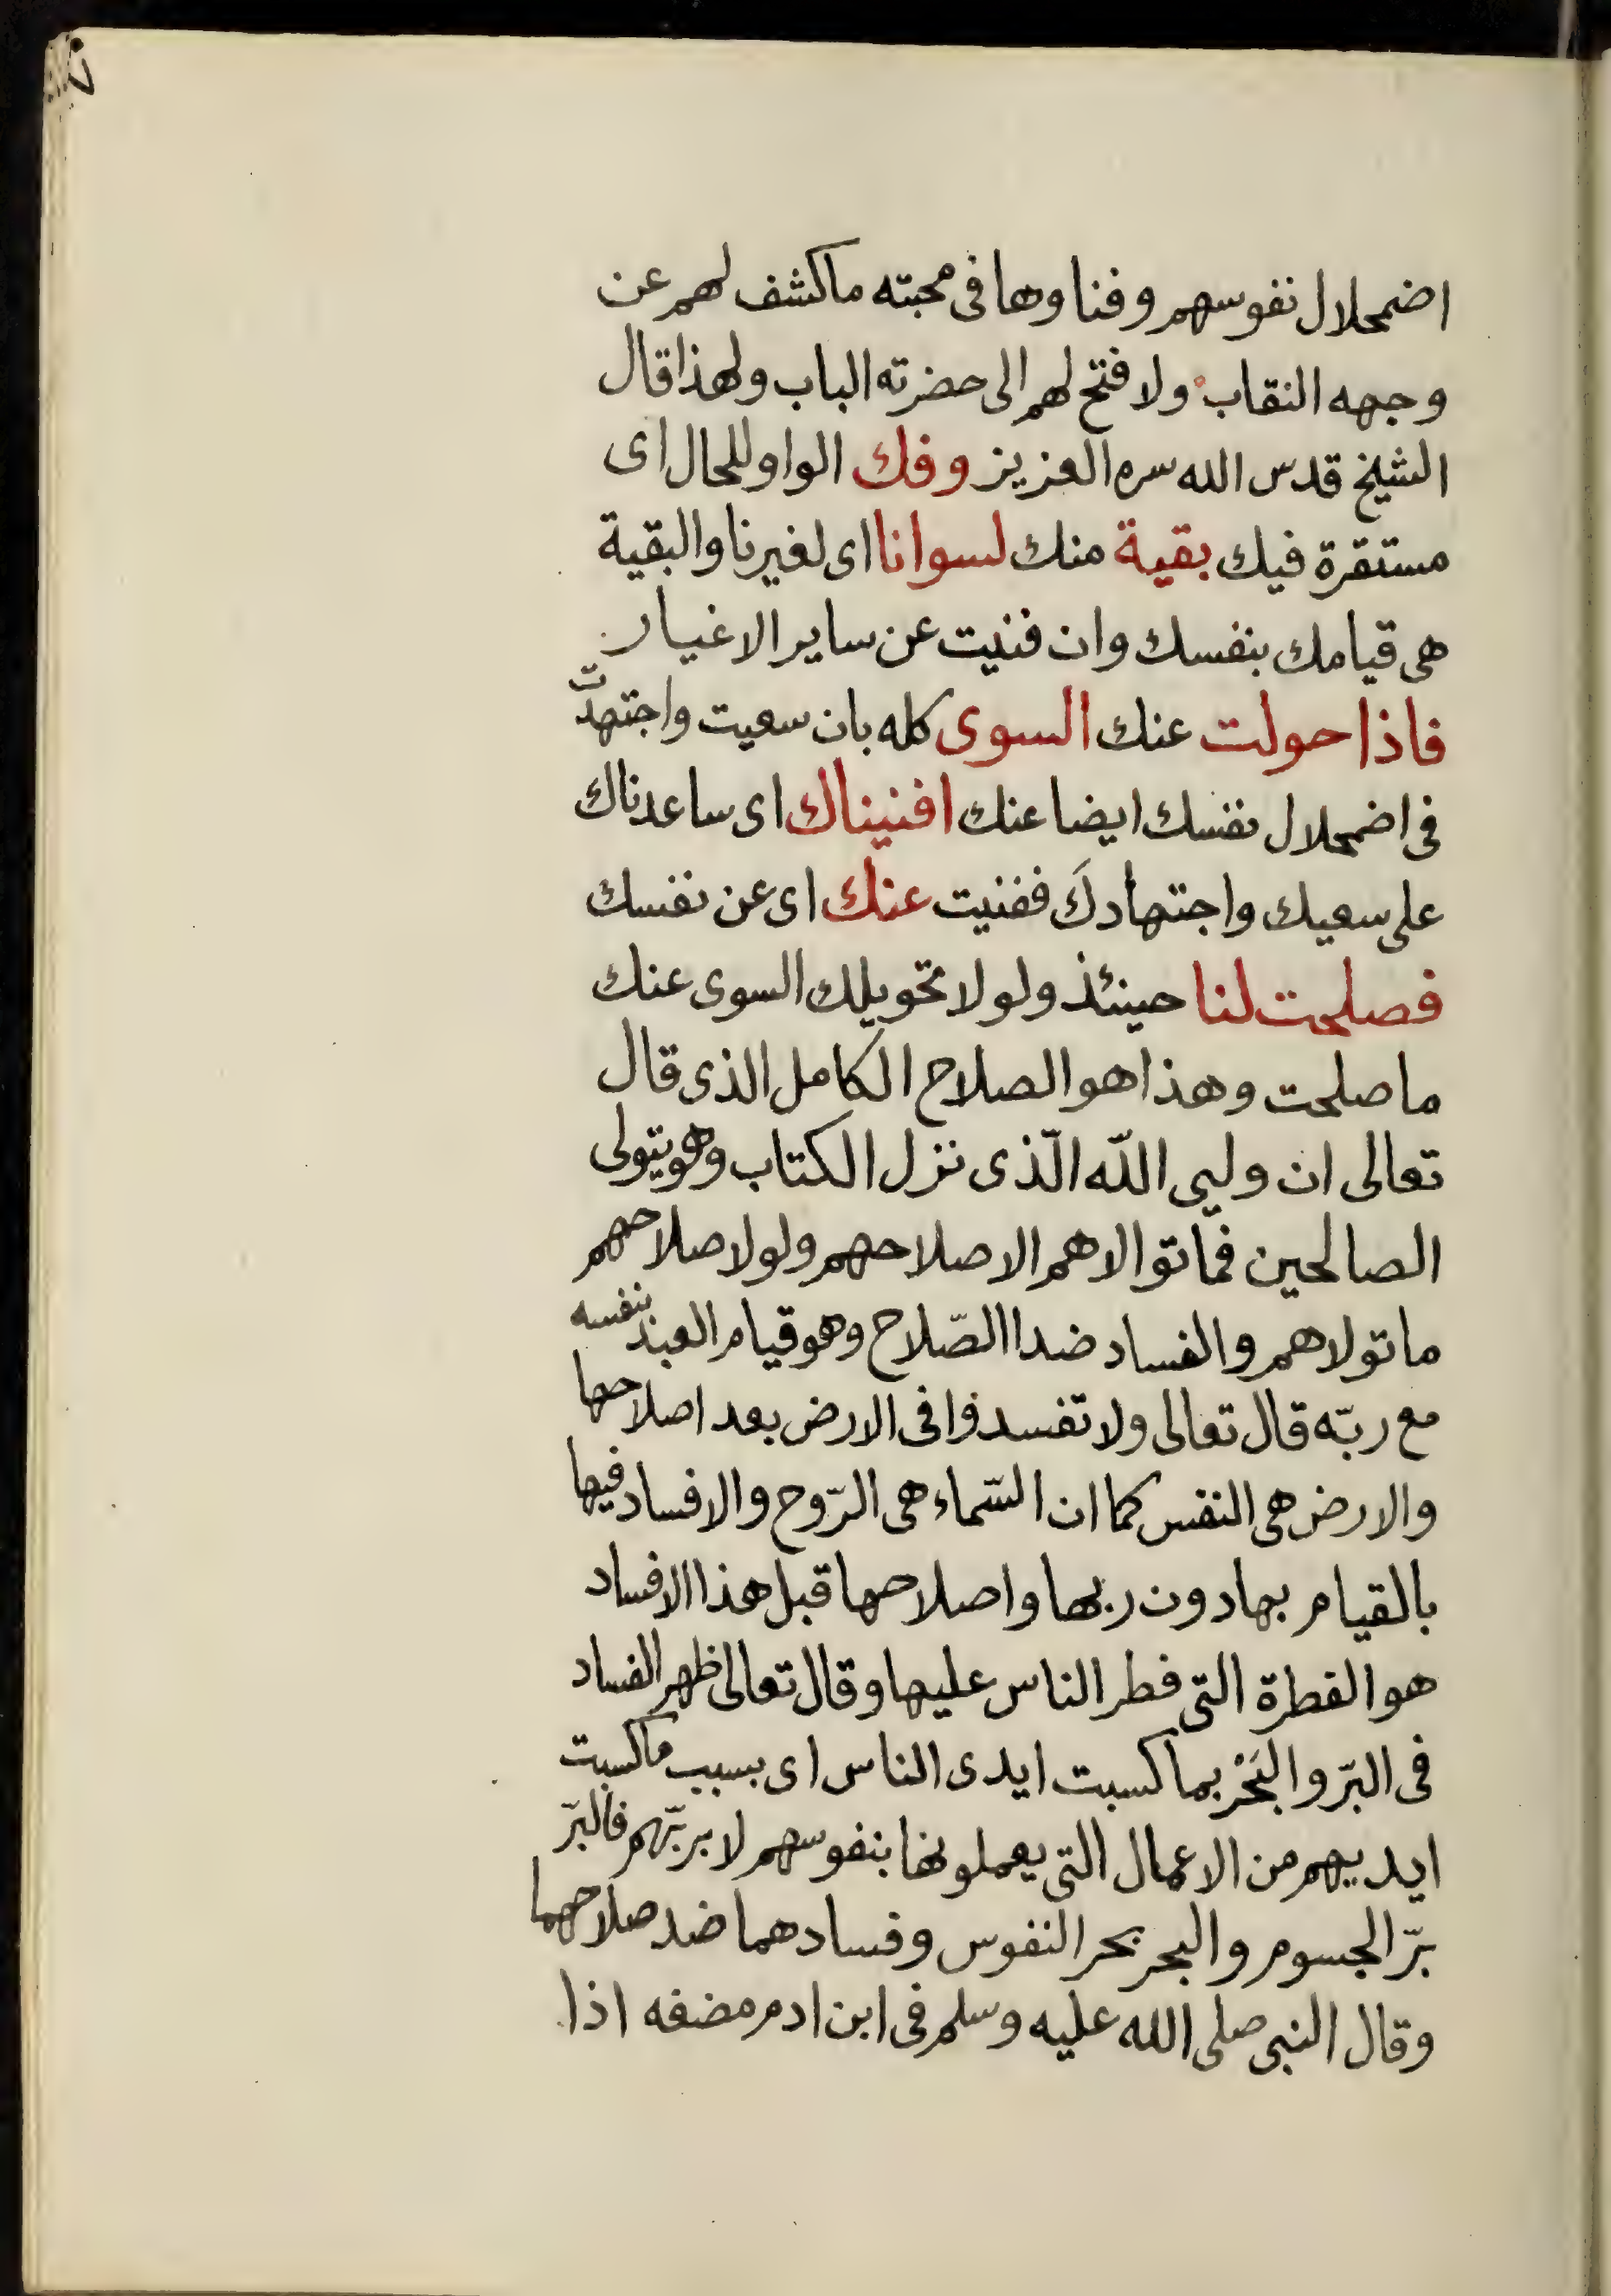 اضمحلال نفوسهم وفناوها فى محبته ماكشف لهم عن
وجهه النقاب ولا فتح لهم الى حضرته الباب ولهذا قال
الشيخ قدس الله سره العزيز وفك الواو للحال اى
مستقرة فيك بقية منك لسوانا اى لغيرنا والبقية
هى قيامك بنفسك وان فنيت عن ساير الاغيار
فاذا حولت عنك السوى كله بان سعيت واجتهدّت
فى اضمحلال نفسك ايضا عنك افنيناك اى ساعدناك
على سعيك واجتهادكَ ففنيت عنك اى عن نفسك
فصلحت لنا حينئذ ولولا تحويلك السوى عنك
ما صلحت وهذا هو الصلاح الكامل الذى قال
تعالى ان وليى اللّه الّذى نزل الكتاب وهو يتولى
الصالحين فما توالاهم الا صلاحهم ولولا صلاحهم
ما تولاهم والفساد ضدا الصّلاح وهو قيام العبد بنفسه
مع ربّه قال تعالى ولا تفسدوا فى الارض بعد اصلاحها
والارض هى النفس كما ان السّماء هى الرّوح والافساد فيها
بالقيام بها دون ربها واصلاحها قبل هذا الافساد
هو الفطرة التى فطر الناس عليها وقال تعالى ظهر الفساد
فى البرّ والبَحْر بما كسبت ايدى الناس اى بسبب ما كسبت
ايديهم من الاعمال التى يعملونها بنفوسهم لا بربّهم فالبرّ
برّ الجسوم والبحر بحر النفوس وفسادهما ضد صلاحهما
وقال النبى صلى الله عليه وسلم فى ابن ادم مضغه اذا